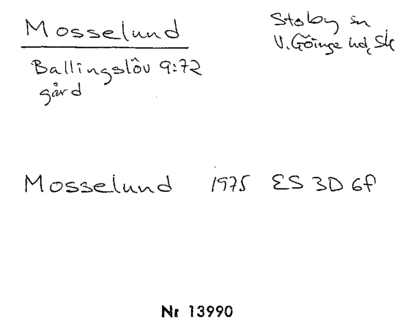 Mosselund
Stoby sn
V. Göinge hd, Sk
Ballingslöv 9:72
gård
Mosselund 1975 ES 3D 6f
Nr 13990